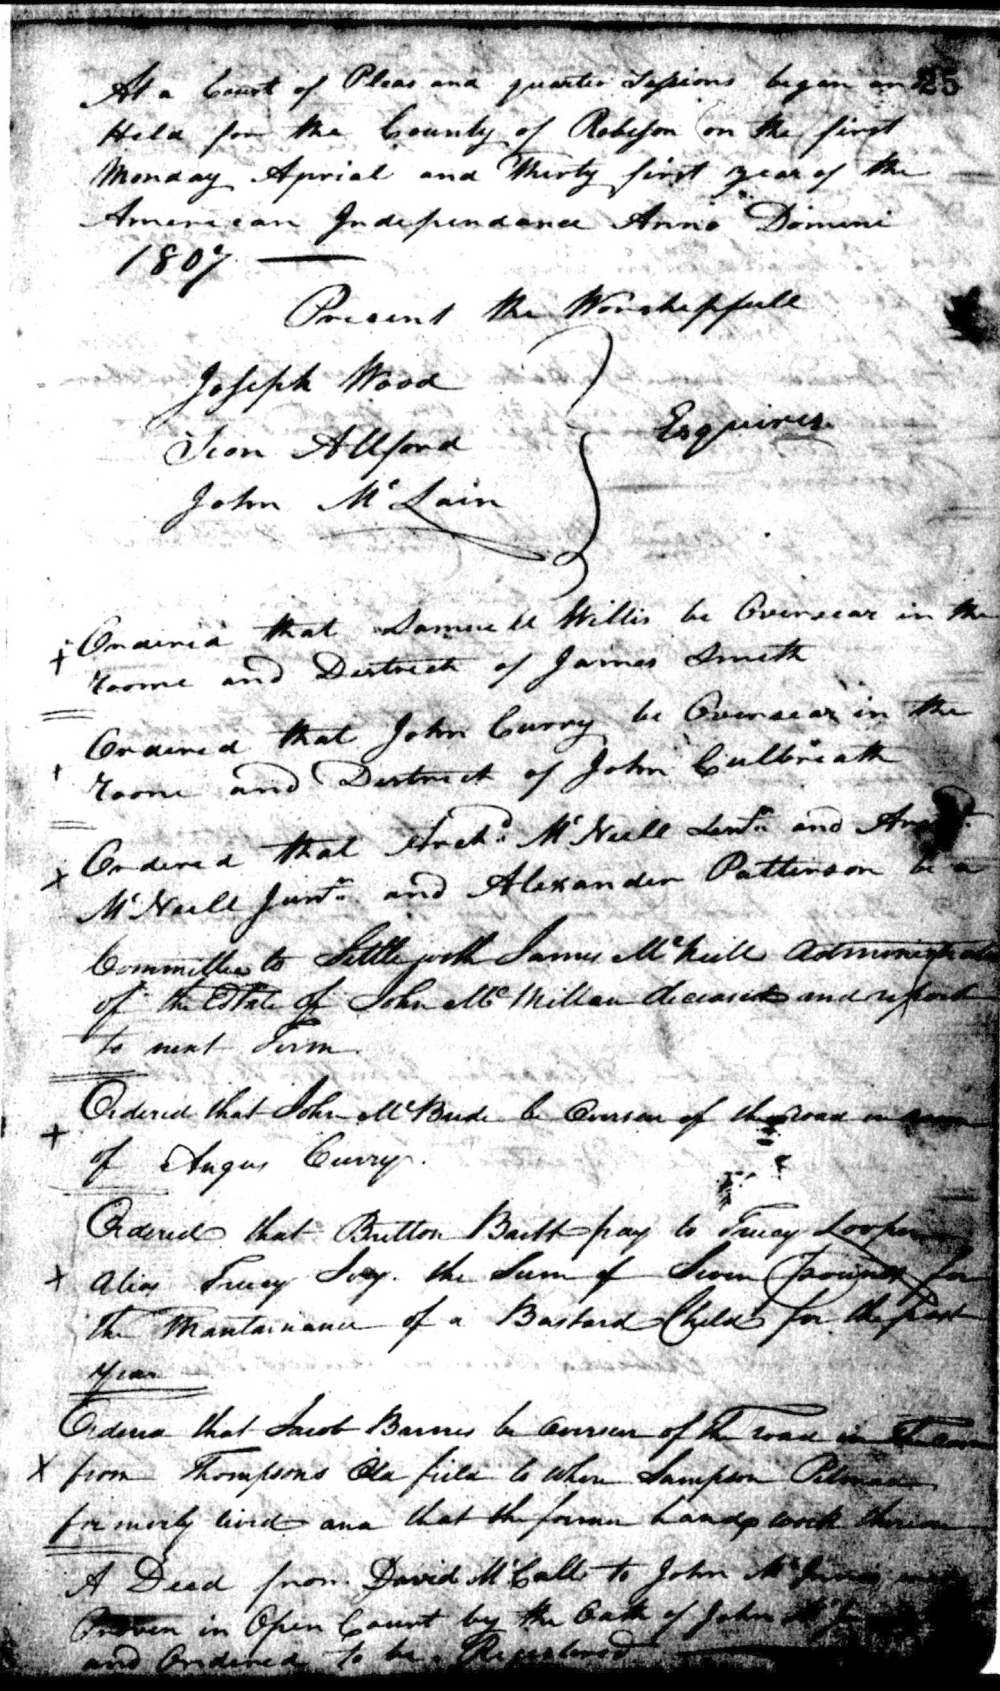 25
At a Court of Pleas and quarter Sessions began and
Held for the County of Robeson on the first
Monday Aprial and Thirty first year of the
American Independance Anno Domini
1807
Present the Worshepfull
Joseph Wood
Sion Allford
John Mc Lain
Esquires
Ordered that Samuell Willis be Oversear in the
roome and Destrect of James Smith
Ordered that John Curry be Oversear in the
roome and Destrect of John Culbreath
Ordered that Archd. McNeill Senr. and
McNeill Junr. and Alexander Patterson be a
Committee to Settle with James McNeill
of the Estate of John McMillan deceased and report
to next Term
Ordered that John McBride be Overseer of the road in
of Angus Curry.
Ordered that Britton Britt pay to Trecy
alias Trecy Ivey the Sum of Seven Pounds for
the Mantainance of a Bastard Child for the past
year
Ordered that Jacob Barnes be Overseer of the road
from Thompsons Old field to where Sampson
formerly lived and that the former hands work thereon
A Deed from David McCall to John
Proven in Open Court by the Oath of John
and Ordered to be Registered